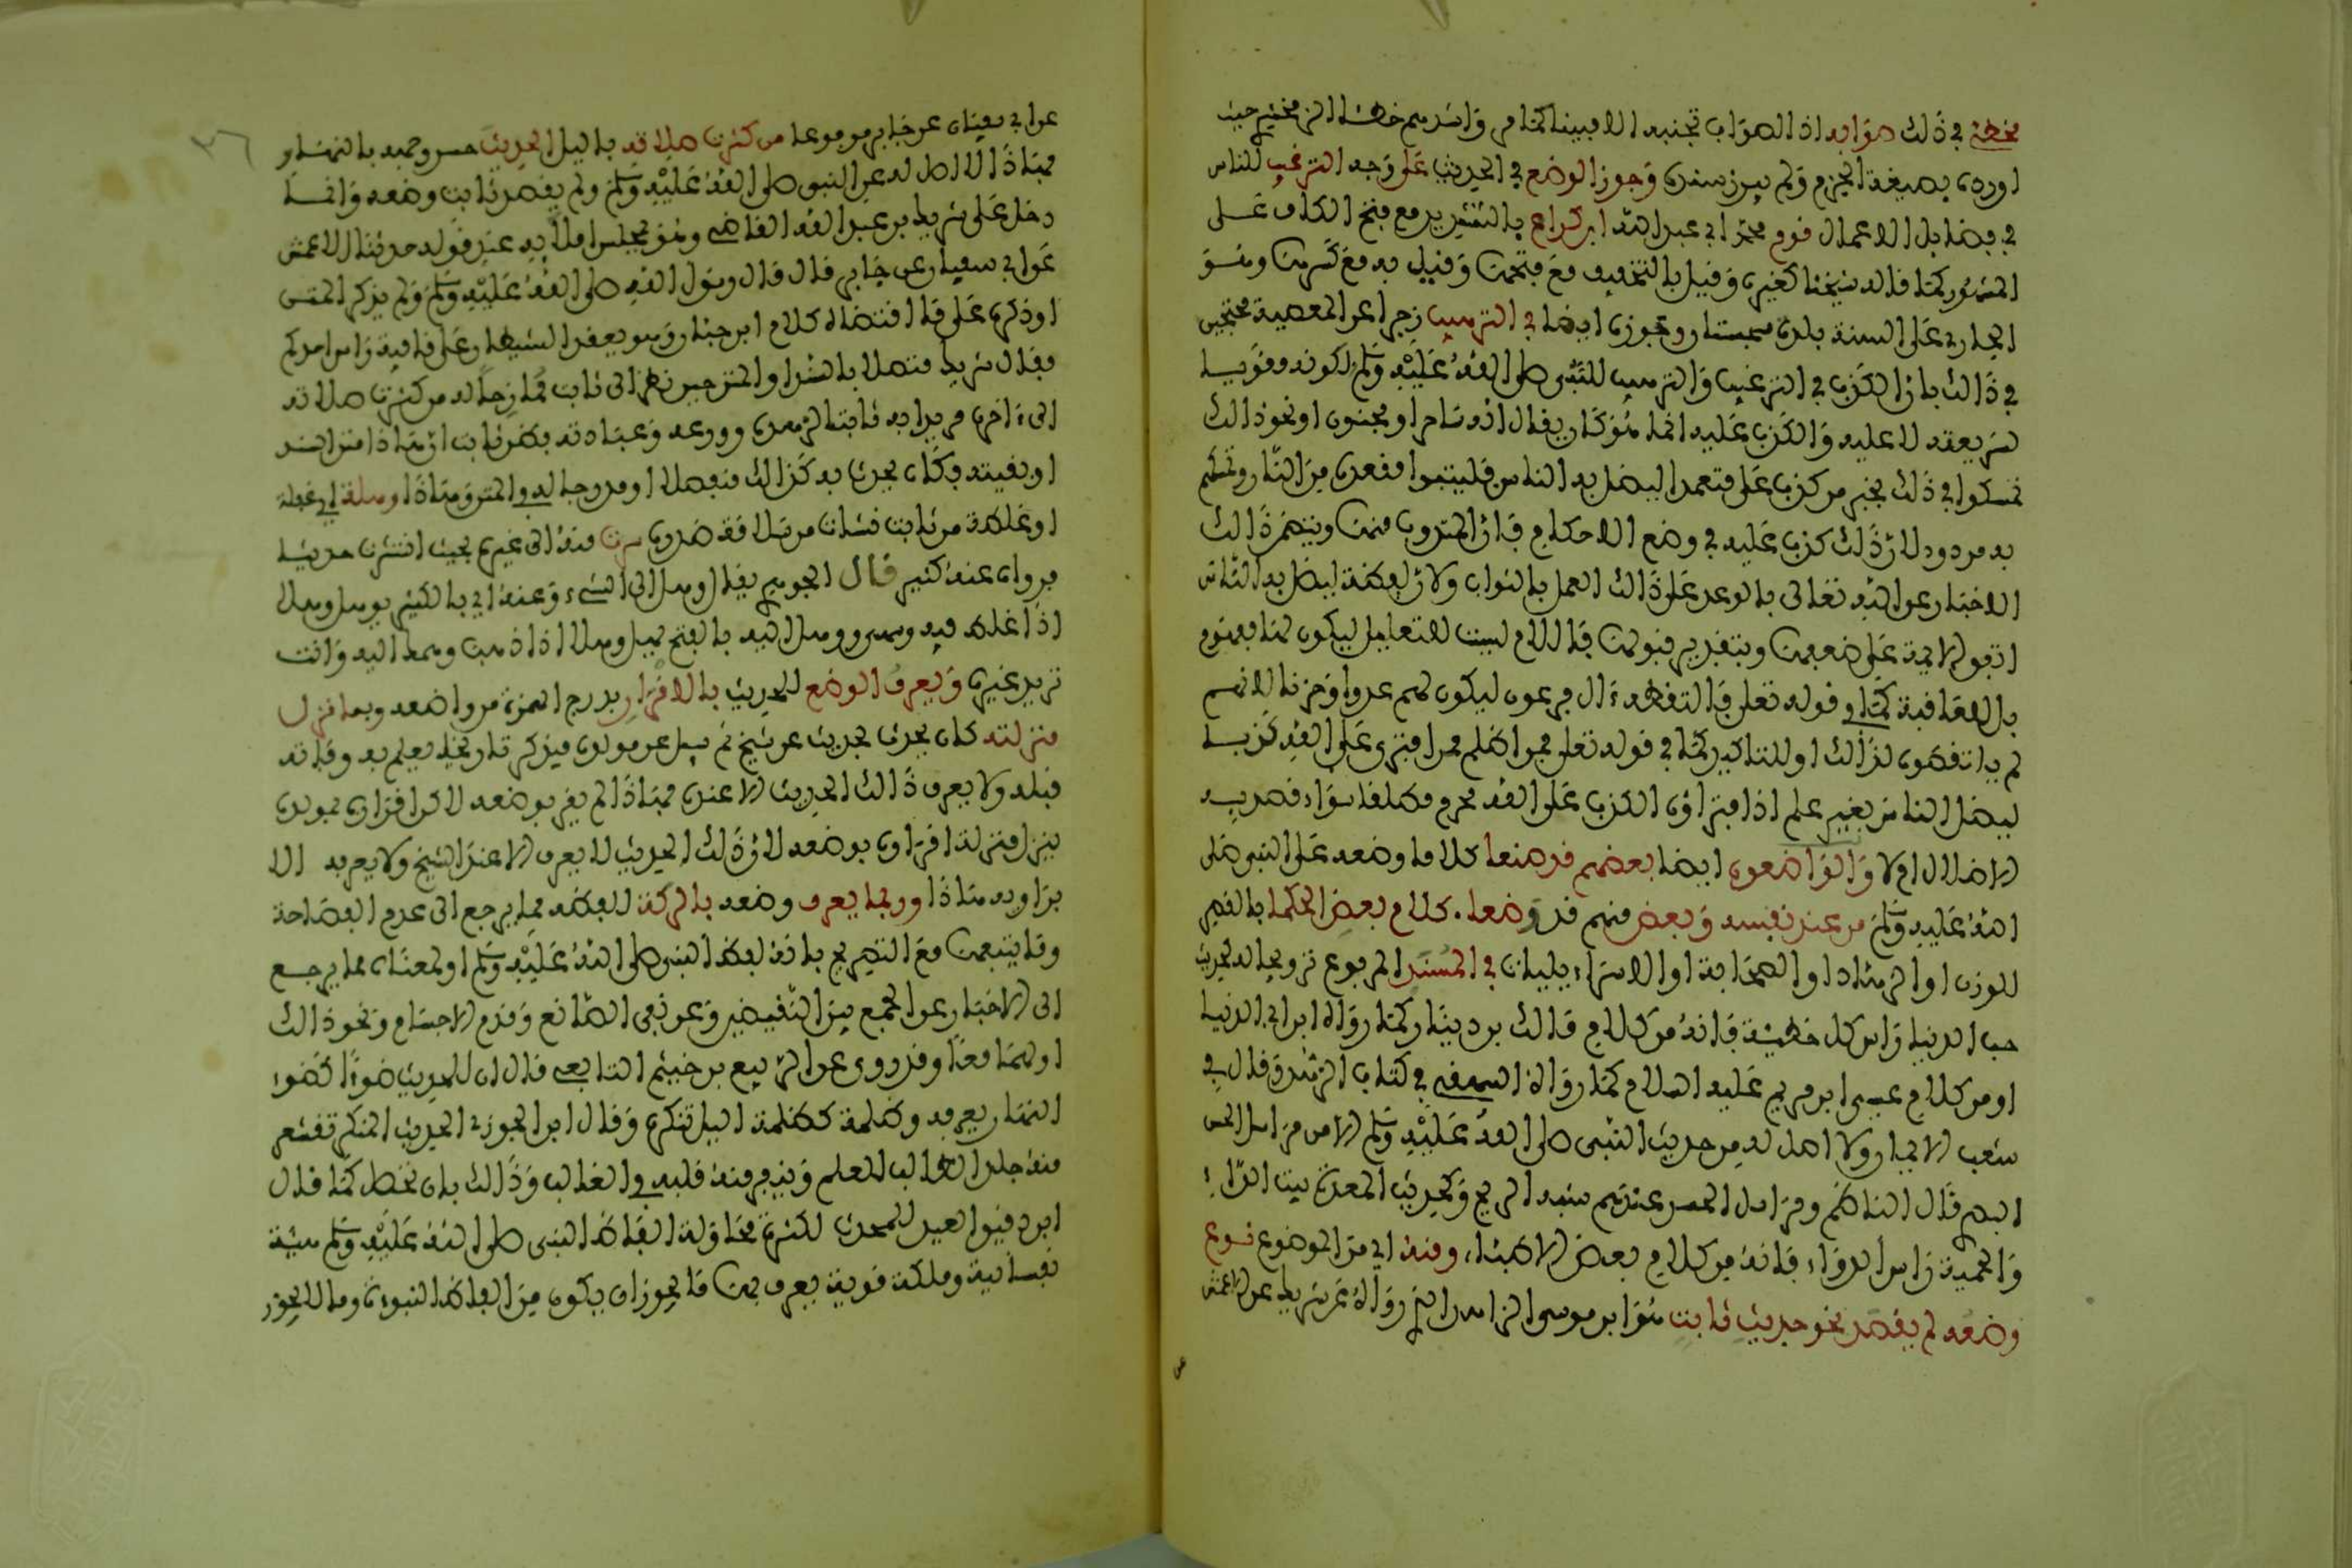 مخطئ في ذلك صوابه اذ الصواب تجنبه الا مبينا كما مر واشدهم خطأ الزمخشري حيث
اورده بصيغة الجزم ولم يبرز سنده وجوز الوضع في الحديث على وجه الترغيب للناس
في فضايل الاعمال قوم محمد ابي عبد الله ابن كرام بالتشديد مع فتح الكاف على
المشهور كما قاله شيخنا كغيره وقيل بالتخفيف مع فتحها وقيل به مع كسرها وهو
الجاري على السنة بلده سجستان وجوزه ايضا في الترهيب زجرا عن المعصية محتجين
في ذالك بان الكذب في الترغيب والترهيب للنبي صلى الله عليه وسلم لكونه مقويا
لشريعته لا عليه والكذب عليه انما هو كان يقال انه ساحر او مجنون او نحو ذالك
تمسكوا في ذلك بخبر من كذب علي متعمدا ليضل به الناس فليتبوا مقعده من النار وتمسكهم
به مردود لان ذلك كذب عليه في وضع الاحكام فان المندوب منها ويتضمن ذالك
الاخبار عن الله تعالى بالوعد على ذالك العمل بالثواب ولان لفظة ليضل به الناس
اتفق الايمة على ضعفها وبتقدير قبولها فاللام ليست للتعليل ليكون لها مفهوم
بل للعاقبة كما في قوله تعالى فالتقطه ءال فرعون ليكون لهم عدوا وحزنا لانهم
لم يلتقطوه لذالك او للتاكيد كما في قوله تعلى فمن اظلم ممن افترى على الله كذبا
ليضل الناس بغير علم اذ افتراؤه الكذب على الله محرم مطلقا سواء قصد به
الاضلال ام لا والواضعون ايضا بعضهم قد صنعا كلاما وضعه على النبي صلى
الله عليه وسلم من عند نفسه وبعض منهم قد وضعا. كلام بعض الحكما بالقصر
للوزن او الزهاد او الصحابة او الاسراءيليات في المسند المرفوع ترويجا له كحديث
حب الدنيا راس كل خطيئة فانه من كلام مالك بن دينار كما رواه ابن ابي الدنيا
او من كلام عيسى ابن مريم عليه السلام كما رواه البيهقي في كتاب الزهد وقال في
شعب الايمان ولا اصل له من حديث النبي صلى الله عليه وسلم الا من مراسل الحسن
البصري قال الناظم ومراسل الحسن عندهم شبه الريح وكحديث المعدة بيت الداء
والحمية راس الدواء فانه من كلام بعض الاطباء ومنه اي من الموضوع نوع
وضعه لم يقصد نحو حديث ثابت هو ابن موسى الزاهد الذي رواه عن شريك عن الاعمش
عن
٢٦
عن ابي سفيان عن جابر مرفوعا من كثرت صلاته بالليل الحديث حسن وجهه بالنهار
فهاذا لا اصل له عن النبي صلى الله عليه وسلم ولم يقصد ثابت وضعه وانما
دخل على شريك بن عبد الله القاضي وهو بمجلس املائه عند قوله حدثنا الاعمش
عن ابي سفيان عن جابر قال قال رسول الله صلى الله عليه وسلم ولم يذكر المتن
او ذكره على ما اقتضاه كلام ابن حبان وهو يعقد الشيطان على قافية راس احدكم
فقال شريك متصلا بالسند او المتن حين نظر الى ثابت ممازحا له من كثرت صلاته
الى ءاخره مريدا به ثابتا لزهده وورعه وعبادته فظن ثابت ان هاذا متن السند
او بقيته فكان يحدث به كذالك منفصلا او مدرجا له في المتن وهاذا وهلة اي غفلة
او غلطة من ثابت نشات من سلامة صدره سرت منه الى غيره بحيث انتشرت حديثا
فرواه عنه كثير قال الجوهري يقال وهل الى الشيء وعنه اي بالكسر يوهل وهلا
اذا غلط فيه وسهى ووهل اليه بالفتح يهل وهلا اذا ذهب وهمه اليه وانت
تريد غيره ويعرف الوضع للحديث بالاقرار بدرج الهمزة من واضعه وبما نزل
منزلته كان يحدث بحديث عن شيخ ثم يسئل عن مولده فيذكر تاريخا يعلم به وفاته
قبله ولا يعرف ذالك الحديث الا عنده فهاذا لم يقر بوضعه لاكن اقراره بمولده
ينزل منزلة اقراره بوضعه لان ذلك الحديث لا يعرف الا عند الشيخ ولا يعرف الا
برواية هاذا وربما يعرف وضعه بالركة للفظه مما يرجع الى عدم الفصاحة
وما يتبعها مع التصريح بانه لفظ النبي صلى الله عليه وسلم او لمعناه مما يرجع
الى الاخبار عن الجمع بين النقيضين وعن نفي الصانع وقدم الاجسام ونحو ذالك
او لهما معا وقد روى عن الربيع بن خثيم التابعي قال ان للحديث ضوءا كضوء
النهار يعرف وظلمة كظلمة اليل تنكره وقال ابن الجوزي الحديث المنكر تقشعر
منه جلد الطالب للعلم وينفر منه قلبه في الغالب وذالك بان تحصل كما قال
ابن دقيق العيد للمحدث لكثرة محاولة الفاظ النبي صلى الله عليه وسلم هيئة
نفسانية وملكة قوية يعرف بها ما يجوز ان يكون من الفاظ النبوة وما لا يجوز